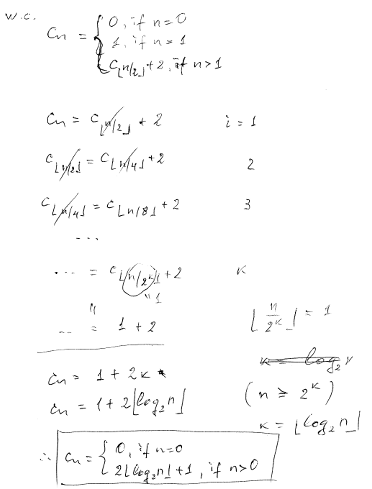 W.C.
Cn = { 0, if n=0
1, if n=1
C⌊n/2⌋ + 2, if n>1
Cn = C⌊n/2⌋ + 2 i = 1
C⌊n/2⌋ = C⌊n/4⌋ + 2 2
C⌊n/4⌋ = C⌊n/8⌋ + 2 3
...
... = C⌊n/2^k⌋ + 2 k
" "1
... = 1 + 2 ⌊n/2^k⌋ = 1
k = log₂
Cn = 1 + 2k (n ≥ 2^k)
Cn = 1 + 2⌊log₂n⌋ k = ⌊log₂n⌋
∴ Cn = { 0, if n=0
2⌊log₂n⌋ + 1, if n>0